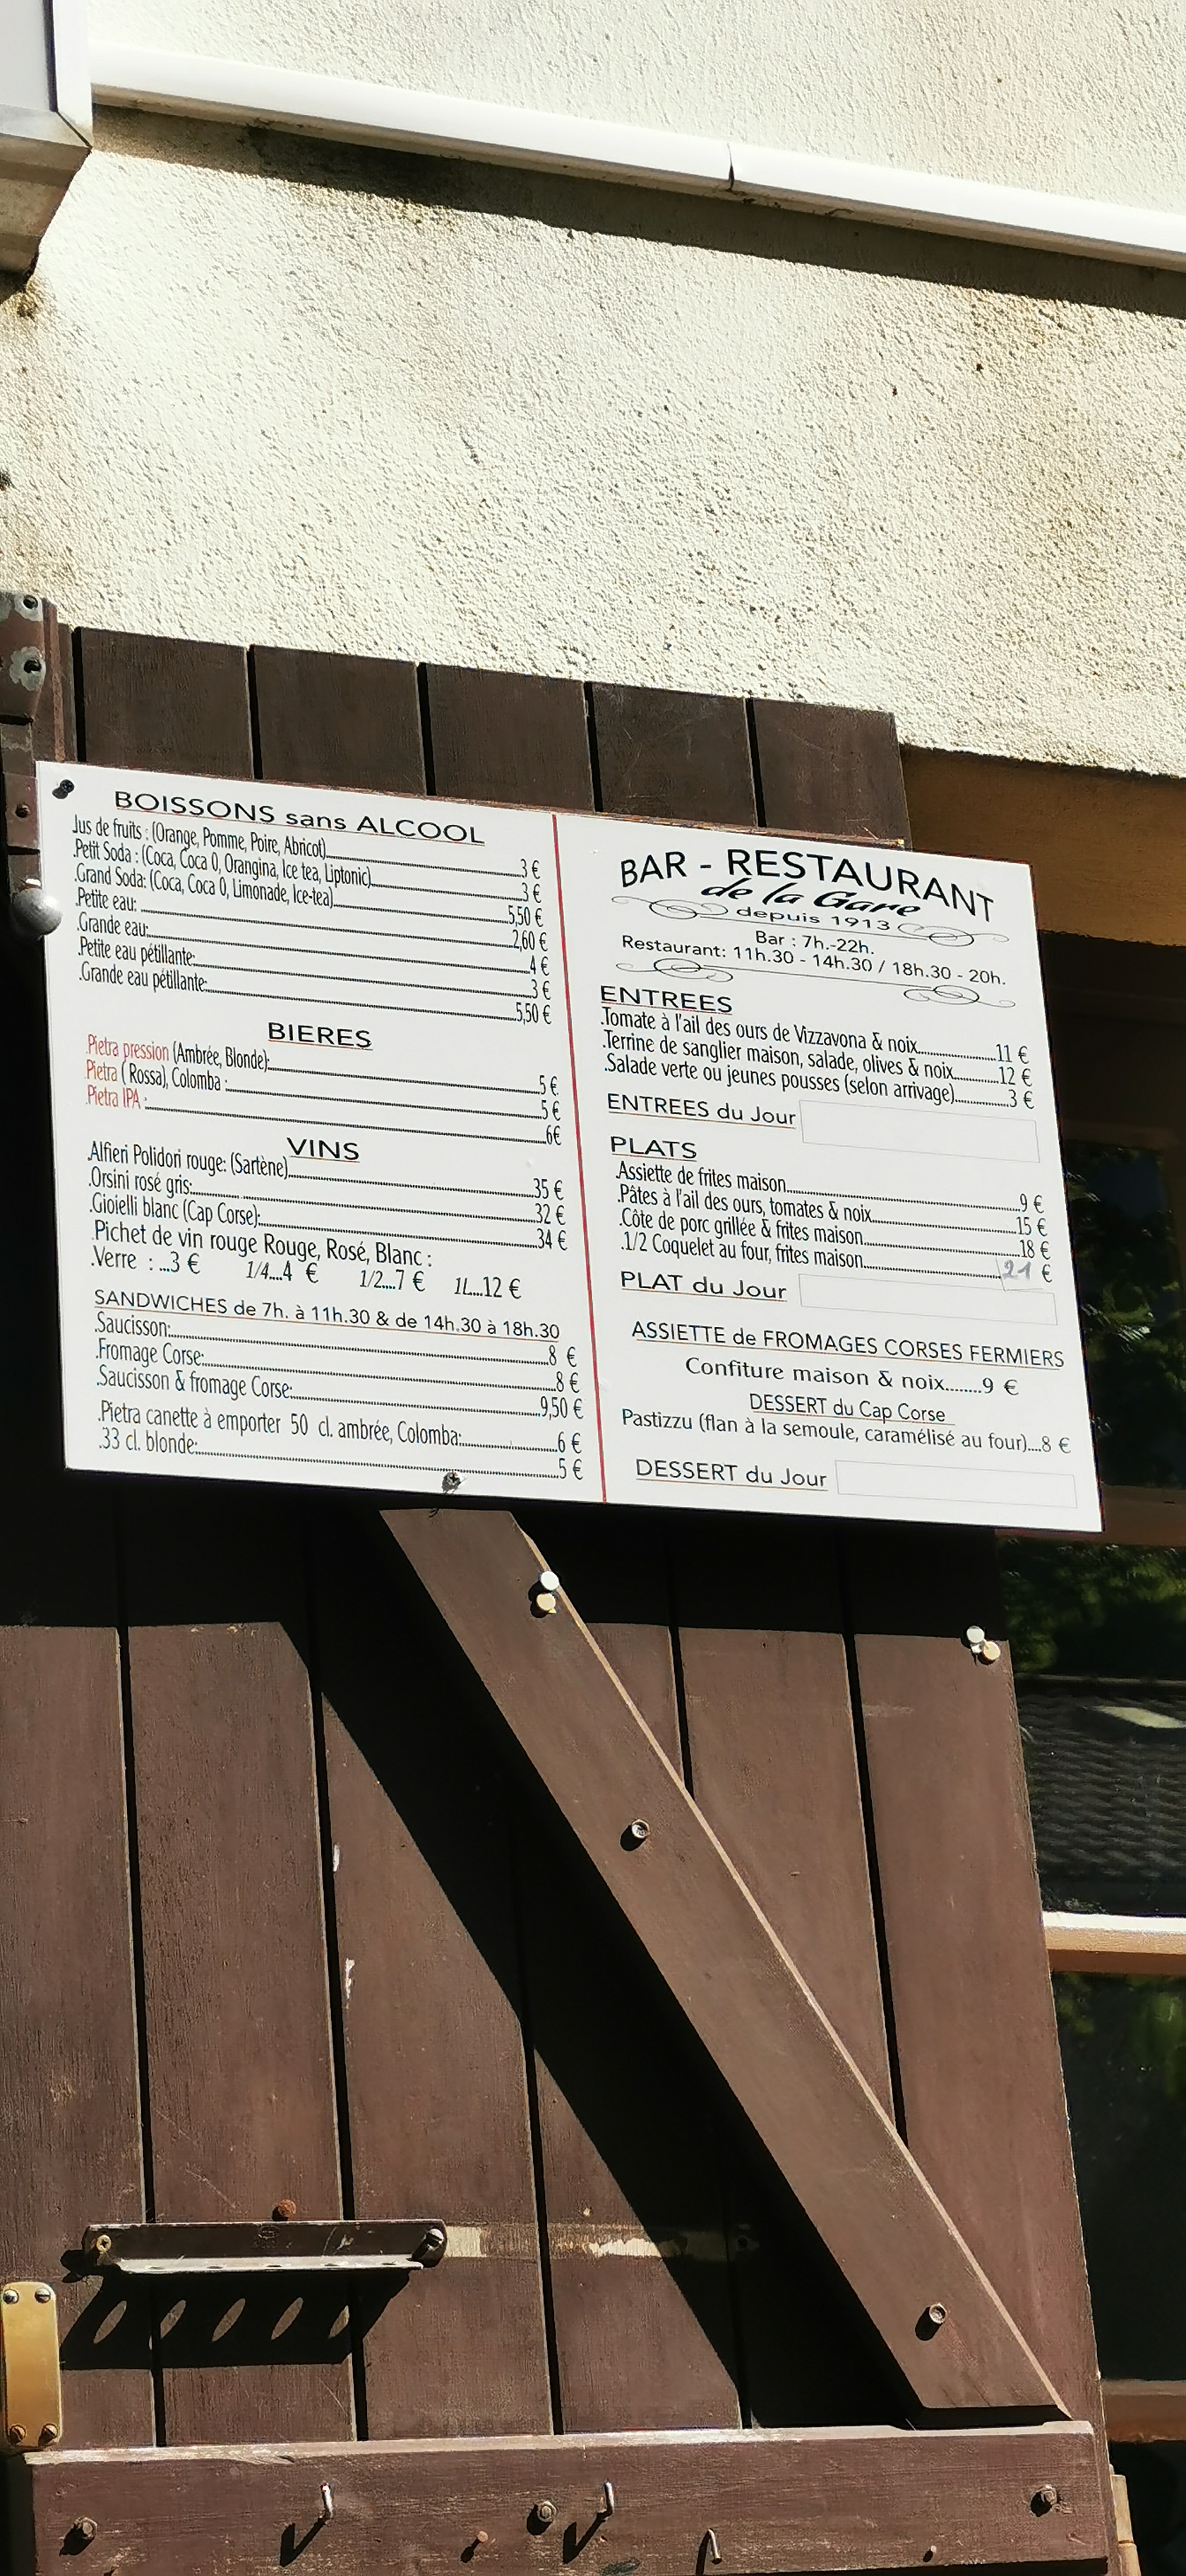 BOISSONS sans ALCOOL
.Jus de fruits : (Orange, Pomme, Poire, Abricot)....3 €
.Petit Soda : (Coca, Coca 0, Orangina, Ice tea, Liptonic)....3 €
.Grand Soda: (Coca, Coca 0, Limonade, Ice-tea)....5,50 €
.Petite eau: ....2,60 €
.Grande eau:....4 €
.Petite eau pétillante:....3 €
.Grande eau pétillante:....5,50 €
BIERES
.Pietra pression (Ambrée, Blonde):....5 €
.Pietra ( Rossa), Colomba :....5 €
.Pietra IPA :....6€
VINS
.Alfieri Polidori rouge: (Sartène)....35 €
.Orsini rosé gris:....32 €
.Gioielli blanc (Cap Corse):....34 €
.Pichet de vin rouge Rouge, Rosé, Blanc :
.Verre : ...3 € 1/4....4 € 1/2....7 € 1L....12 €
SANDWICHES de 7h. à 11h.30 & de 14h.30 à 18h.30
.Saucisson:....8 €
.Fromage Corse:....8 €
.Saucisson & fromage Corse:....9,50 €
.Pietra canette à emporter 50 cl. ambrée, Colomba:....6 €
.33 cl. blonde:....5 €
BAR - RESTAURANT
de la Gare
depuis 1913
Bar : 7h.-22h.
Restaurant: 11h.30 - 14h.30 / 18h.30 - 20h.
ENTREES
.Tomate à l'ail des ours de Vizzavona & noix....11 €
.Terrine de sanglier maison, salade, olives & noix....12 €
.Salade verte ou jeunes pousses (selon arrivage)....3 €
ENTREES du Jour
PLATS
.Assiette de frites maison....9 €
.Pâtes à l'ail des ours, tomates & noix....15 €
.Côte de porc grillée & frites maison....18 €
.1/2 Coquelet au four, frites maison....21 €
PLAT du Jour
ASSIETTE de FROMAGES CORSES FERMIERS
Confiture maison & noix........9 €
DESSERT du Cap Corse
Pastizzu (flan à la semoule, caramélisé au four)....8 €
DESSERT du Jour